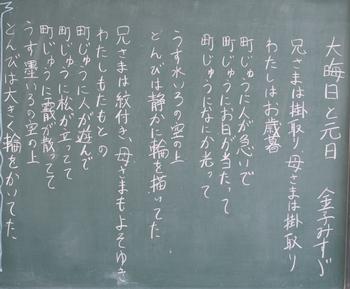 大晦日と元日　金子みすゞ
兄さまは掛取り母さまは掛取り
わたしはお歳暮
町じゅうに人が急いで
町じゅうにお日が当たって
町じゅうになにか光って
うす水いろの空の上
とんびは静かに輪を描いてた
兄さまは紋付き、母さまもよそゆき
わたしもたもとの
町じゅうに人が遊んで
町じゅうに松が立ってて
町じゅうに霰が散ってて
うす墨いろの空の上
とんびは大きく輪をかいてた